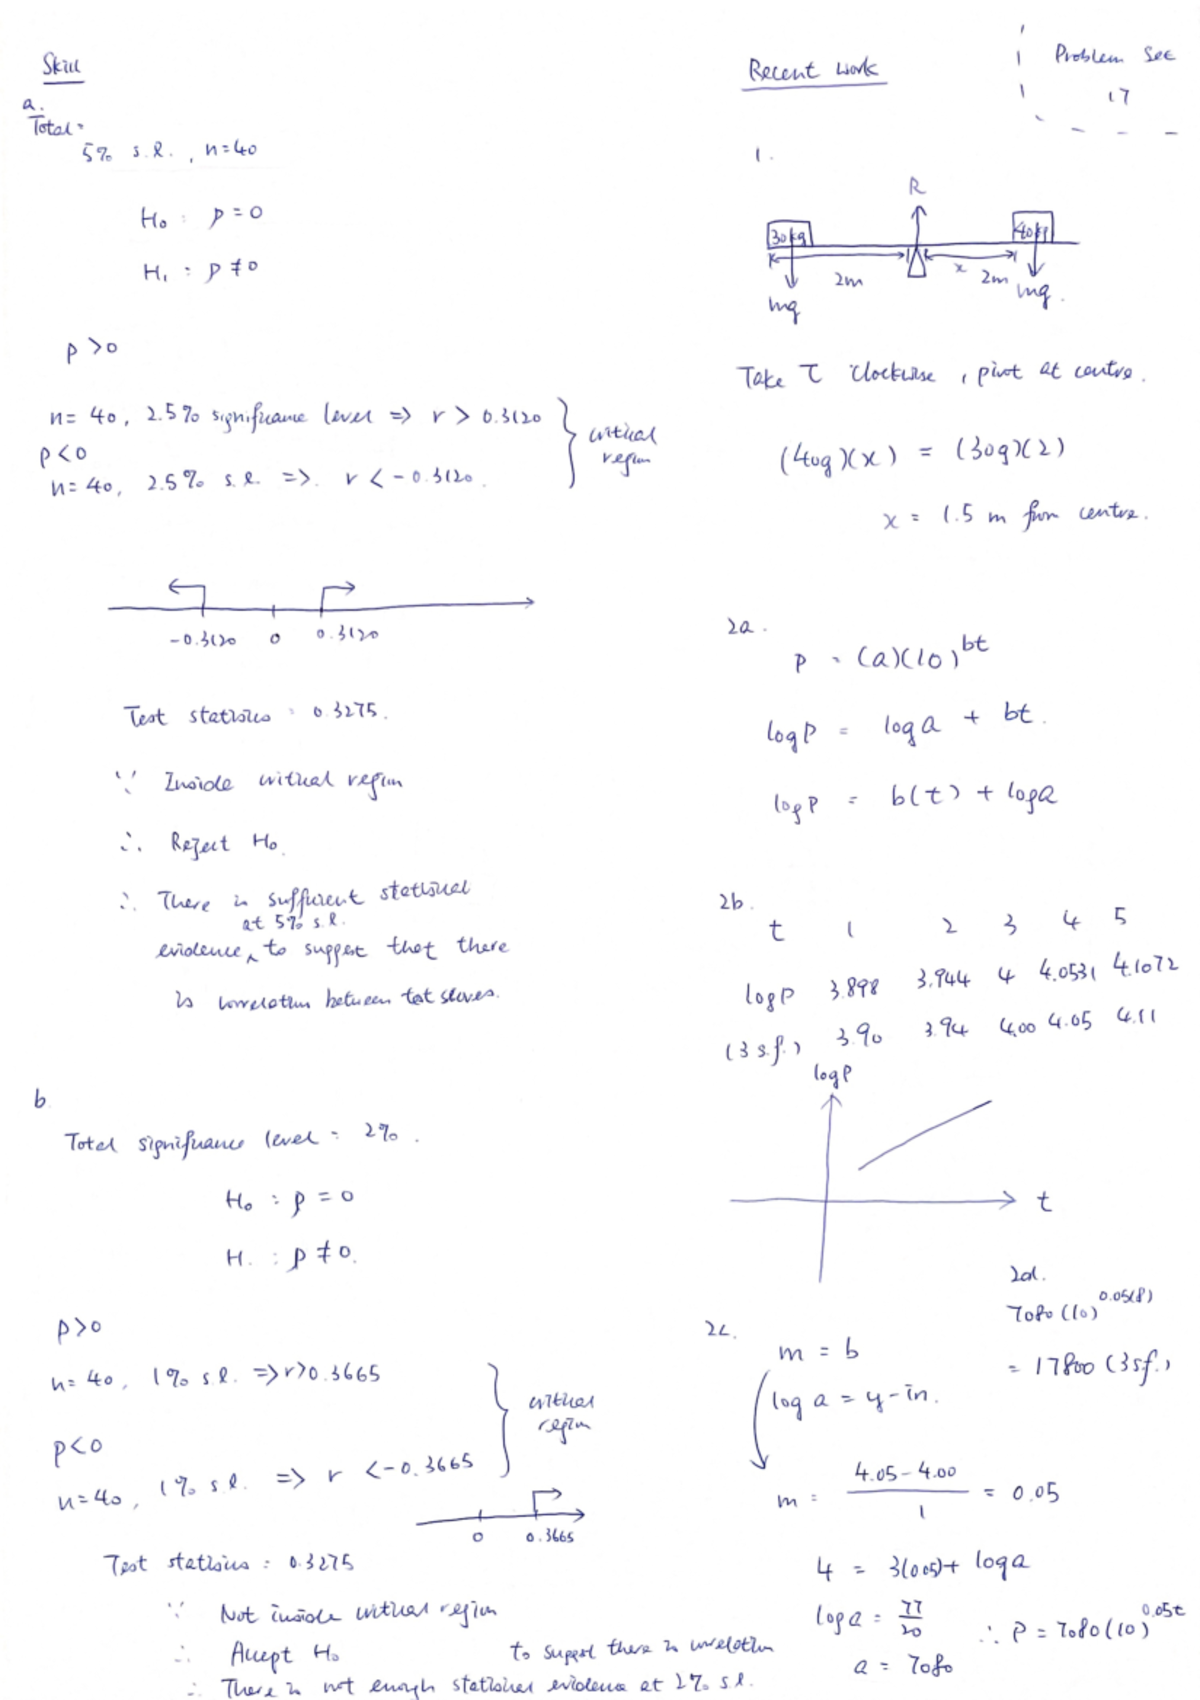 Skill
a.
Total =
5% s.l., n=40
H₀ : ρ = 0
H₁ : ρ ≠ 0
ρ > 0
n= 40, 2.5% significance level => r > 0.3120
ρ < 0
n= 40, 2.5% s.l. =>. r < -0.3120.
critical
region
-0.3120 0 0.3120
Test statistics : 0.3275.
∵ Inside critical region
∴ Reject H₀.
∴ There is sufficient statistical
at 5% s.l.
evidence ^ to suggest that there
is correlation between test scores.
b
Total significance level = 2%.
H₀ : ρ = 0
H. : ρ ≠ 0.
ρ>0
n= 40, 1% s.l. => r>0.3665
ρ<0
n=40, 1% s.l. => r <-0.3665
critical
region
0 0.3665
Test statistics : 0.3275
∵ Not inside critical region
∴ Accept H₀
to suggest there is correlation
∴ There is not enough statistical evidence at 2% s.l.
Recent work
Problem Set
17
1.
R
30kg 40kg
2m x 2m
mg mg.
Take τ clockwise, pivot at centre.
(40g)(x) = (30g)(2)
x = 1.5 m from centre.
2a.
P = (a)(10)^bt
log P = log a + bt.
log P = b(t) + log a
2b.
t 1 2 3 4 5
log P 3.898 3.944 4 4.0531 4.1072
(3 s.f.) 3.90 3.94 4.00 4.05 4.11
log P
t
2c.
m = b
log a = y-in.
m = (4.05 - 4.00)/1 = 0.05
4 = 3(0.05)+ log a
log a = 77/20
a = 7080
∴ P = 7080(10)^0.05t
2d.
7080(10)^0.05(8)
= 17800 (3sf.)